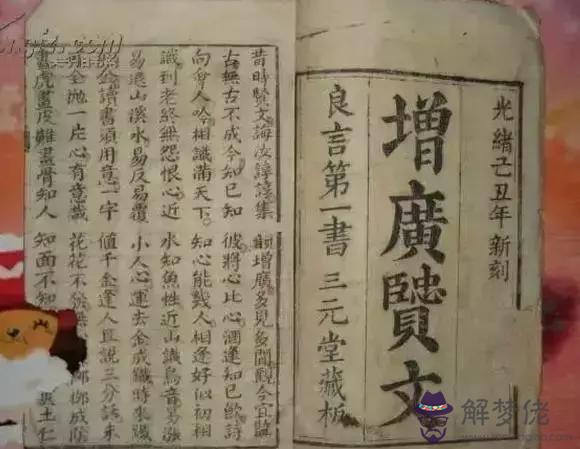 光緒己丑年新刻
增廣賢文
良言第一書 三元堂藏板
昔時賢文誨汝諄諄集 韻增廣多見多聞觀今宜鑒
古無古不成今知己知 彼將心比心酒逢知己飲詩
向會人吟相識滿天下 知心能幾人相逢好似初相
識到老終無怨恨心近 水知魚性近山識鳥音易漲
易退山溪水易反易覆 小人心運去金成鐵時來鐵
金讀書須用意一字 值千金逢人且說三分話未
全拋一片心有意栽 花花不發無 柳成陰
畫虎畫皮難畫骨知人 知面不知 土仁
解梦佬